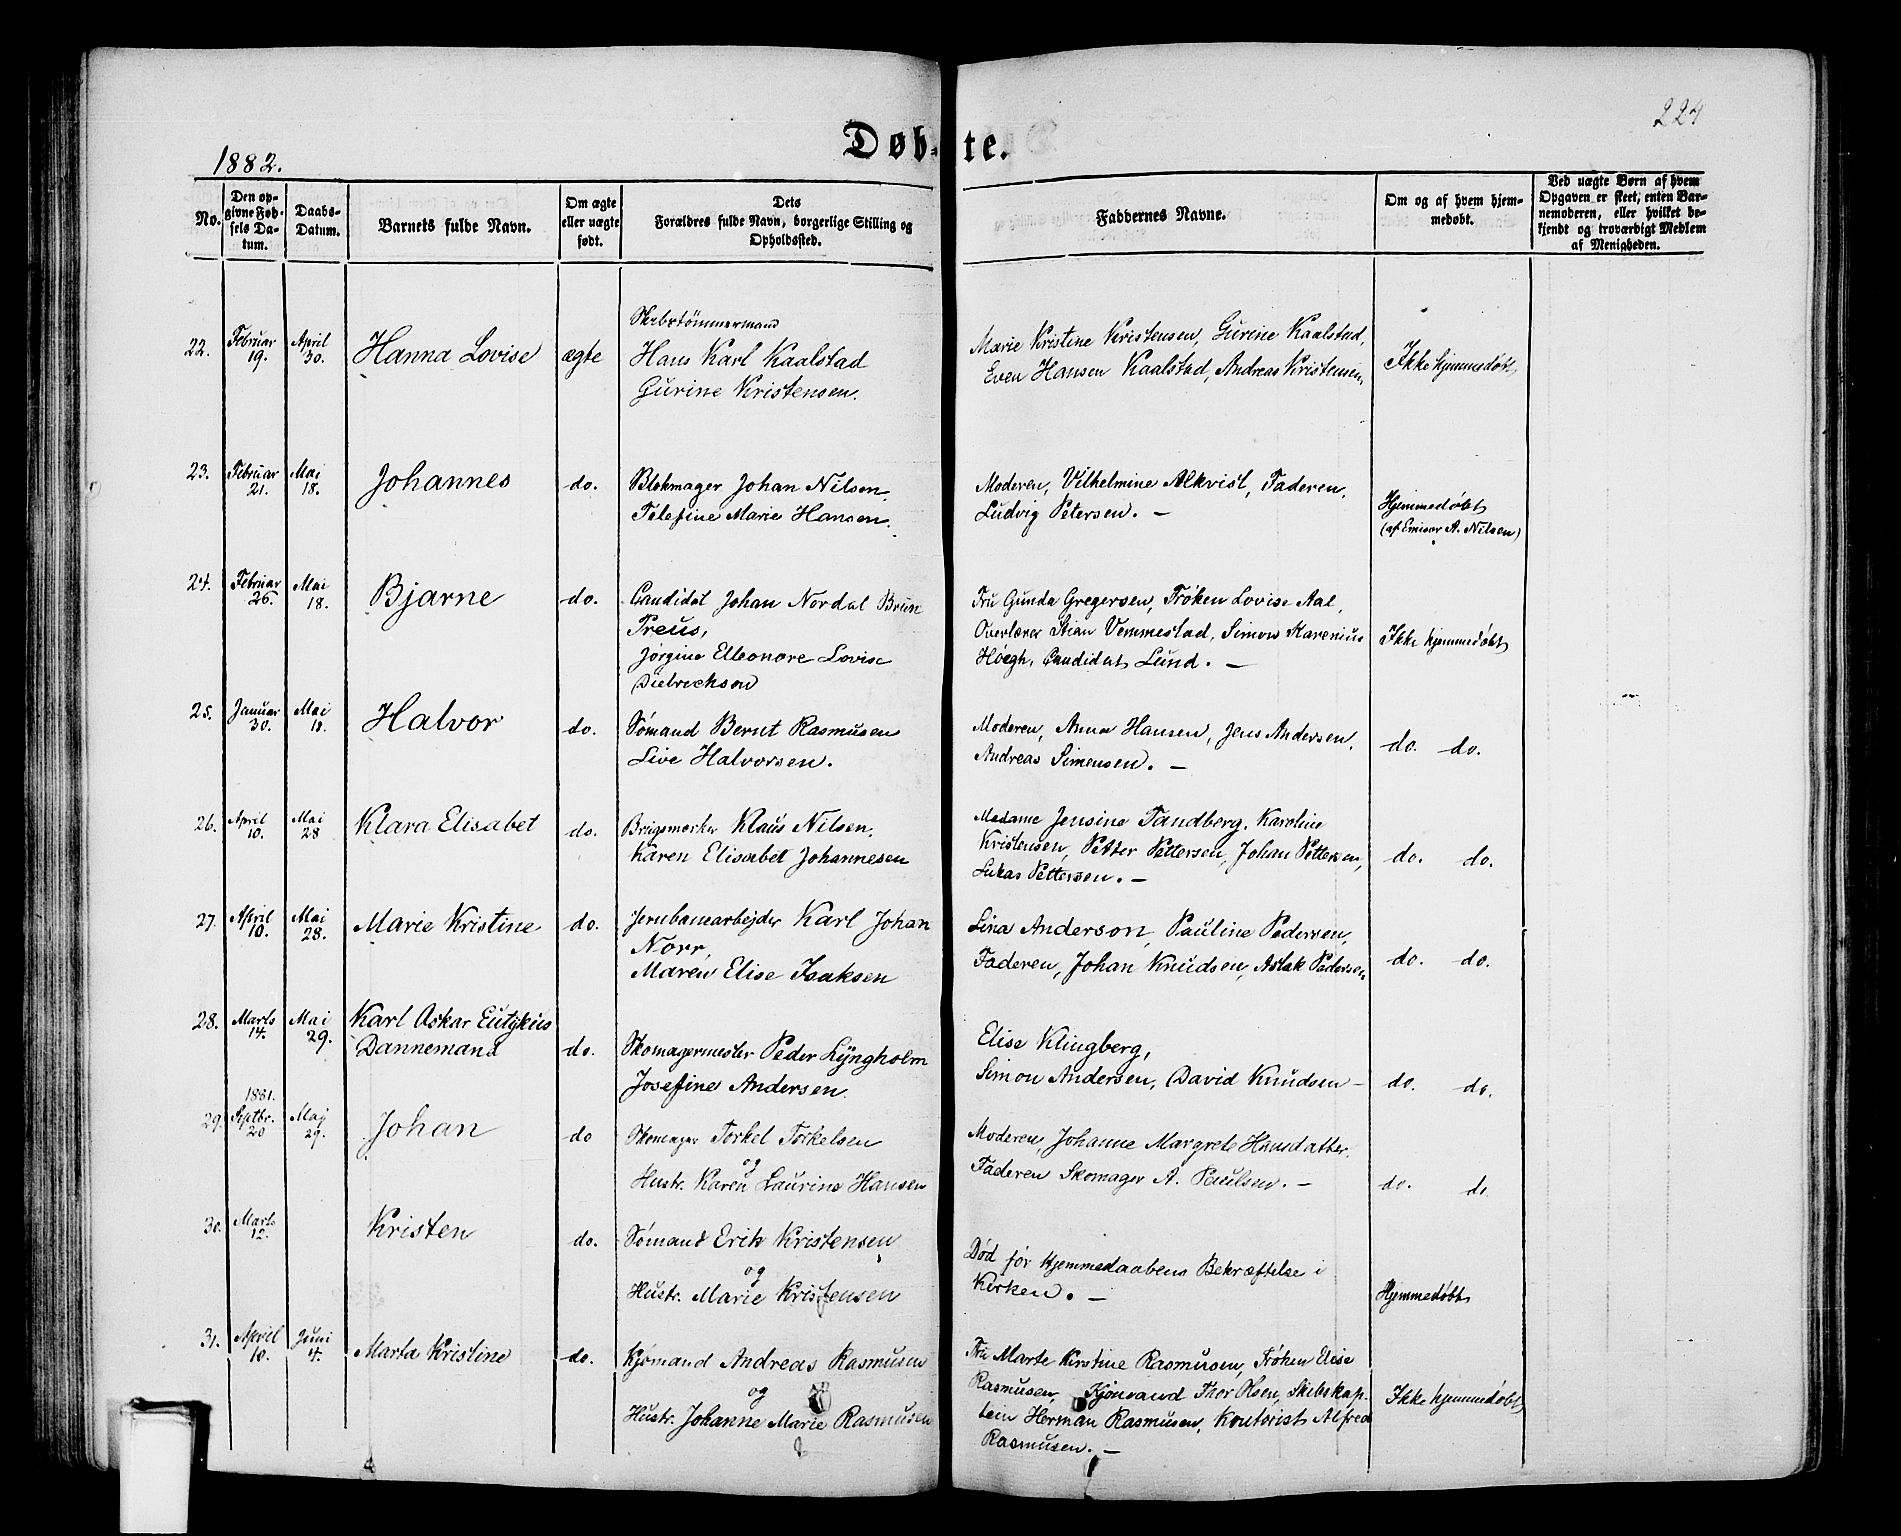 224
Døbte.
1882.
No.
Den opgivne Fødsels Datum.
Daabs-Datum.
Barnets fulde Navn.
Om ægte eller uægte født.
Dets Forældres fulde Navn, borgerlige Stilling og Opholdssted.
Faddernes Navne.
Om og af hvem hjemmedøbt.
Ved uægte Børn af hvem Opgaven er skeet, enten Barnemoderen, eller hvilket bekjendt og troværdigt Medlem af Menigheden.
22. Februar 19. April 30. Hanna Lovise ægte
Skibstømmermand
Hans Karl Kaalstad
Gurine Kristensen.
Marie Kristine Kristensen, Gurine Kaalstad,
Even Hansen Kaalstad, Andreas Kristensen,
Ikke hjemmedøbt
23. Februar 21. Mai 18. Johannes do.
Blokmager Johan Nilsen,
Telefine Marie Hansen.
Moderen, Vilhelmine Alkvist, Faderen,
Ludvig Petersen. —
Hjemmedøbt
(af Emisær A. Nilsen)
24. Februar 26. Mai 18. Bjarne do.
Candidat Johan Nordal Brun
Preus,
Jørgine Elleonore Lovise
Dietrichson
Fru Gunda Gregersen, Frøken Lovise Aal,
Overlærer Stian Vemmestad, Simon Karenius
Høegh, Candidat Lund. —
Ikke hjemmedøbt
25. Januar 30. Mai 18. Halvor do.
Sømand Bernt Rasmusen
Live Halvorsen.
Moderen, Anna Hansen, Jens Andersen,
Andreas Simensen. —
do. do.
26. April 10. Mai 28 Klara Elisabet do.
Brigsmerker Klaus Nilsen,
Karen Elisabet Johannesen
Madame Jensine Tandberg, Karoline
Kristensen, Petter Pettersen, Johan Pettersen,
Lukas Pettersen. —
do. do.
27. April 10. Mai 28. Marie Kristine do.
Jernbanearbejder Karl Johan
Norr,
Maren Elise Isaksen
Lina Anderson, Pauline Pedersen,
Faderen, Johan Knudsen, Aslak Pedersen
do. do.
28. Marts 14. Mai 29. Karl Oskar Eutykius
Dannemand do.
Skomagermester Peder Lyngholm
Josefine Andersen.
Elise Klingberg,
Simon Andersen, David Knudsen —
do. do.
29. 1881. Septbr. 20 Maj 29. Johan do
Skomager Torkel Torkelsen
og
Hustr. Karen Laurine Hansen
Moderen, Johanne Margrete Hansdatter,
Faderen Skomager A. Paulsen. —
do. do
30. Marts 12. Kristen do.
Sømand Erik Kristensen
og
Hustr. Marie Kristensen
Død før Hjemmedaabens Bekræftelse i
Kirken. —
Hjemmedøbt
31. April 10. Juni 4. Marta Kristine do.
Kjømand Andreas Rasmusen
og
Hustr. Johanne Marie Rasmusen
Fru Marte Kirstine Rasmusen, Frøken Elise
Rasmusen, Kjømand Thor Olsen, Skibskap-
tein Herman Rasmusen, Kontorist Alfred
Rasmusen. —
Ikke hjemmedøbt